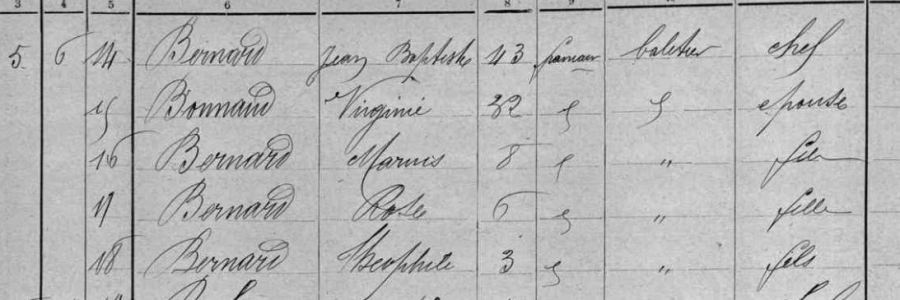 3 4 5 6 7 8 9
5 6 14 Bernard Jean Baptiste 43 francais chef
15 Bonnaud Virginie 32 epouse
16 Bernard 8 " fils
17 Bernard Rose 6 " fille
18 Bernard Theophile 3 " fils